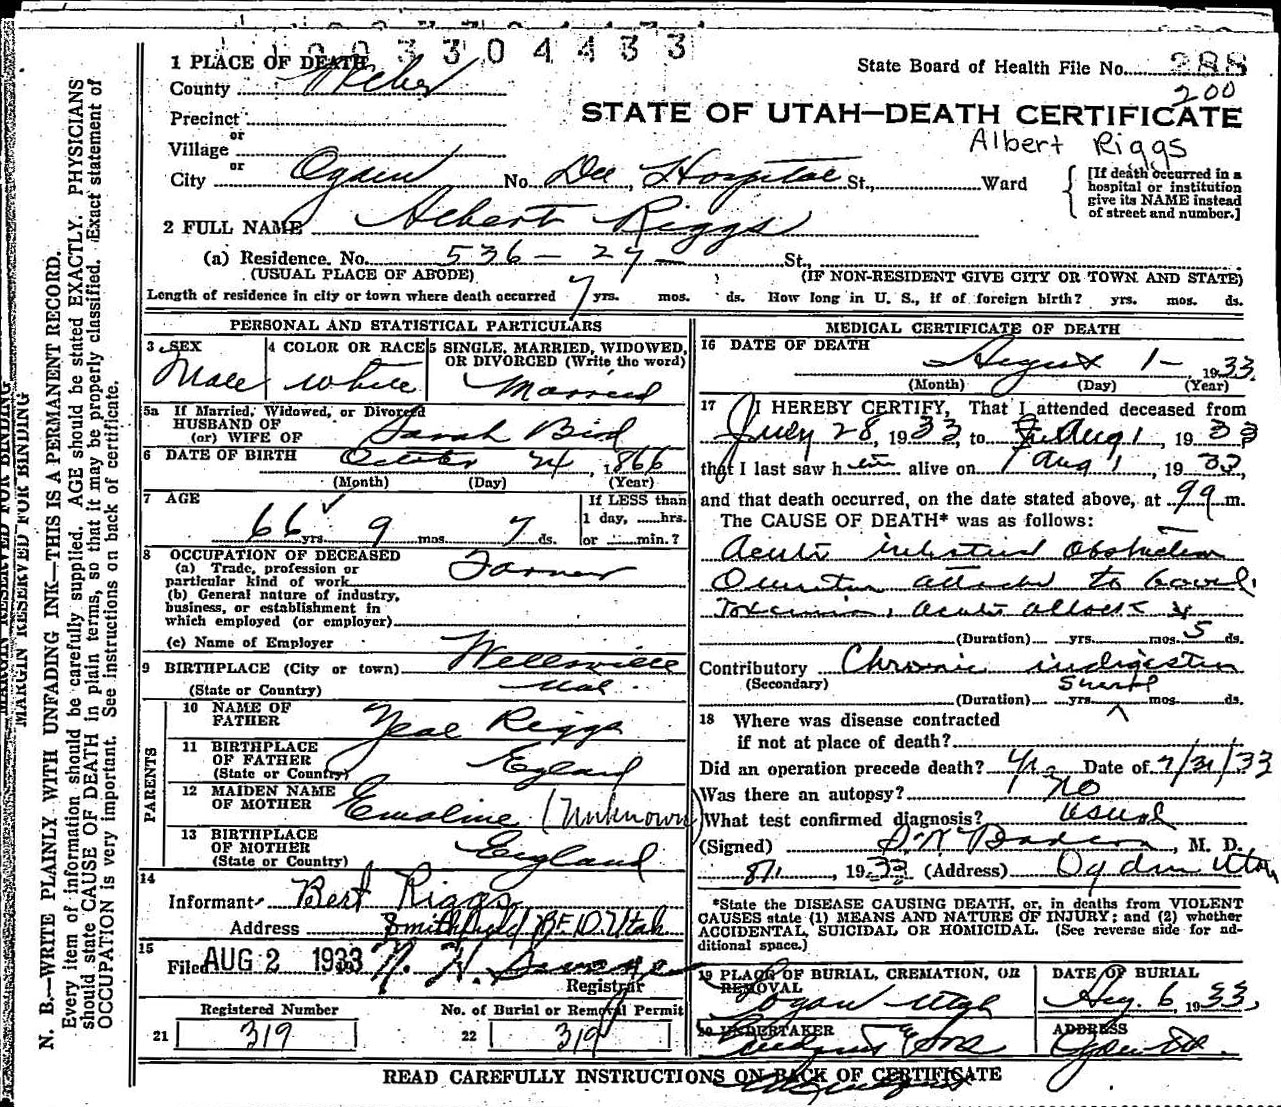 1 0 0 3 3 0 4 4 3 3
1 PLACE OF DEATH
State Board of Health File No. 288
200
County Weber
STATE OF UTAH—DEATH CERTIFICATE
Precinct
or
Village
Albert Riggs
or
City Ogden No. Dee Hospital St., Ward
[If death occurred in a hospital or institution give its NAME instead of street and number.]
2 FULL NAME Albert Riggs
(a) Residence. No. 536 – 27 – St.,
(USUAL PLACE OF ABODE) (IF NON-RESIDENT GIVE CITY OR TOWN AND STATE)
Length of residence in city or town where death occurred 7 yrs. mos. ds. How long in U. S., if of foreign birth? yrs. mos. ds.
PERSONAL AND STATISTICAL PARTICULARS
3 SEX Male
4 COLOR OR RACE white
5 SINGLE, MARRIED, WIDOWED, OR DIVORCED (Write the word) Married
5a If Married, Widowed, or Divorced
HUSBAND OF
(or) WIFE OF Sarah Bird
6 DATE OF BIRTH October 24, 1866
(Month) (Day) (Year)
7 AGE 66 yrs. 9 mos. 7 ds.
If LESS than
1 day, hrs.
or min.?
8 OCCUPATION OF DECEASED
(a) Trade, profession or
particular kind of work Farmer
(b) General nature of industry,
business, or establishment in
which employed (or employer)
(c) Name of Employer
9 BIRTHPLACE (City or town) Wellsville
(State or Country)
PARENTS
10 NAME OF
FATHER Neal Riggs
11 BIRTHPLACE
OF FATHER
(State or Country) England
12 MAIDEN NAME
OF MOTHER Emoline (Unknown)
13 BIRTHPLACE
OF MOTHER
(State or Country) England
14
Informant Bert Riggs
Address Smithfield R.F.D. Utah
15
Filed AUG 2 1933
Registrar
Registered Number No. of Burial or Removal Permit
21 319 22 319
MEDICAL CERTIFICATE OF DEATH
16 DATE OF DEATH
August 1 – 1933
(Month) (Day) (Year)
17 I HEREBY CERTIFY, That I attended deceased from
July 28, 1933, to Aug 1, 1933
that I last saw him alive on Aug 1, 1933
and that death occurred, on the date stated above, at 9 a m.
The CAUSE OF DEATH* was as follows:
Acute intestinal obstruction
to bowel
Toxemia, acute attack
(Duration) yrs. mos. 5 ds.
Contributory Chronic indigestion
(Secondary)
(Duration) several yrs. mos. ds.
18 Where was disease contracted
if not at place of death?
Did an operation precede death? Yes Date of 7/31/33
Was there an autopsy? no
What test confirmed diagnosis? usual
(Signed) M. D.
8/1, 1933 (Address) Ogden Utah
*State the DISEASE CAUSING DEATH, or, in deaths from VIOLENT
CAUSES state (1) MEANS AND NATURE OF INJURY; and (2) whether
ACCIDENTAL, SUICIDAL OR HOMICIDAL. (See reverse side for ad-
ditional space.)
19 PLACE OF BURIAL, CREMATION, OR
REMOVAL
Logan Utah
DATE OF BURIAL
Aug. 6, 1933
20 UNDERTAKER
& Sons
ADDRESS
Ogden Ut.
READ CAREFULLY INSTRUCTIONS ON BACK OF CERTIFICATE
MARGIN RESERVED FOR BINDING
MARGIN RESERVED FOR BINDING
N. B.—WRITE PLAINLY WITH UNFADING INK—THIS IS A PERMANENT RECORD.
Every item of information should be carefully supplied. AGE should be stated EXACTLY. PHYSICIANS
should state CAUSE OF DEATH in plain terms, so that it may be properly classified. Exact statement of
OCCUPATION is very important. See instructions on back of certificate.